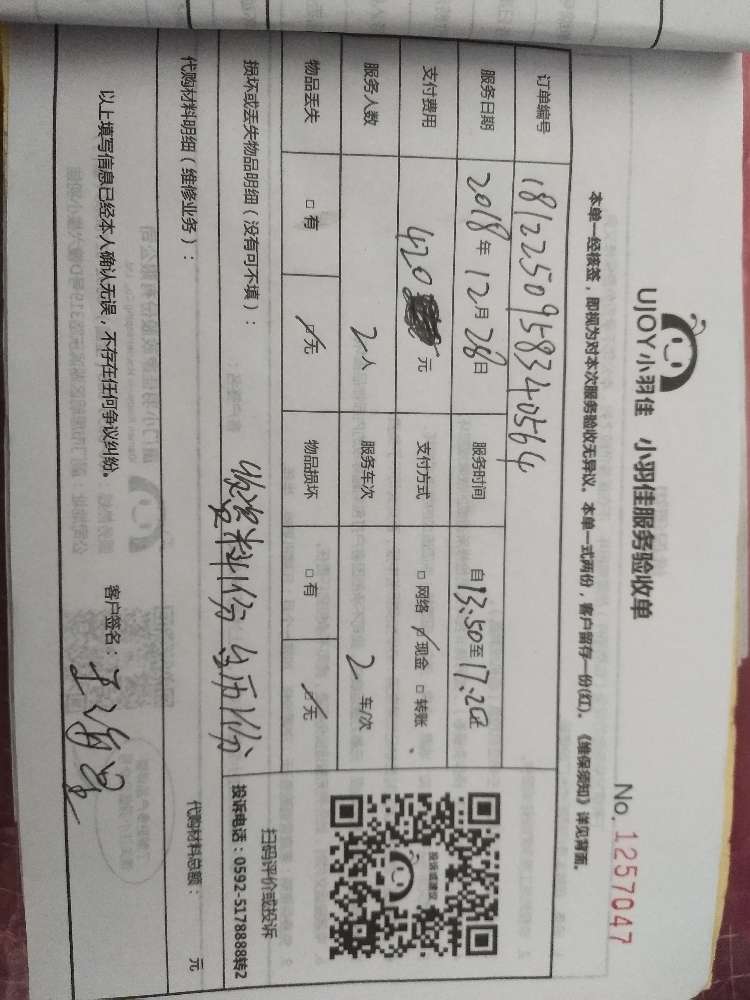 UJOY小羽佳 小羽佳服务验收单
No. 1257047
本单一经核签，即视为对本次服务验收无异议。本单一式两份，客户留存一份(红)。《维保须知》详见背面。
订单编号 1812250958340564
服务日期 2018年12月28日 服务时间 自13:50至17:20止
支付费用 420元 支付方式 □网络 ☑现金 □转账
服务人数 2人 服务车次 2车/次
物品丢失 □有 ☑无 物品损坏 □有 ☑无
投诉或建议
扫码评价或投诉
投诉电话：0592-5178888转2
损坏或丢失物品明细（没有可不填）：
资料1份
代购材料明细（维修业务）：
代购材料总额： 元
以上填写信息已经本人确认无误，不存在任何争议纠纷。 客户签名：